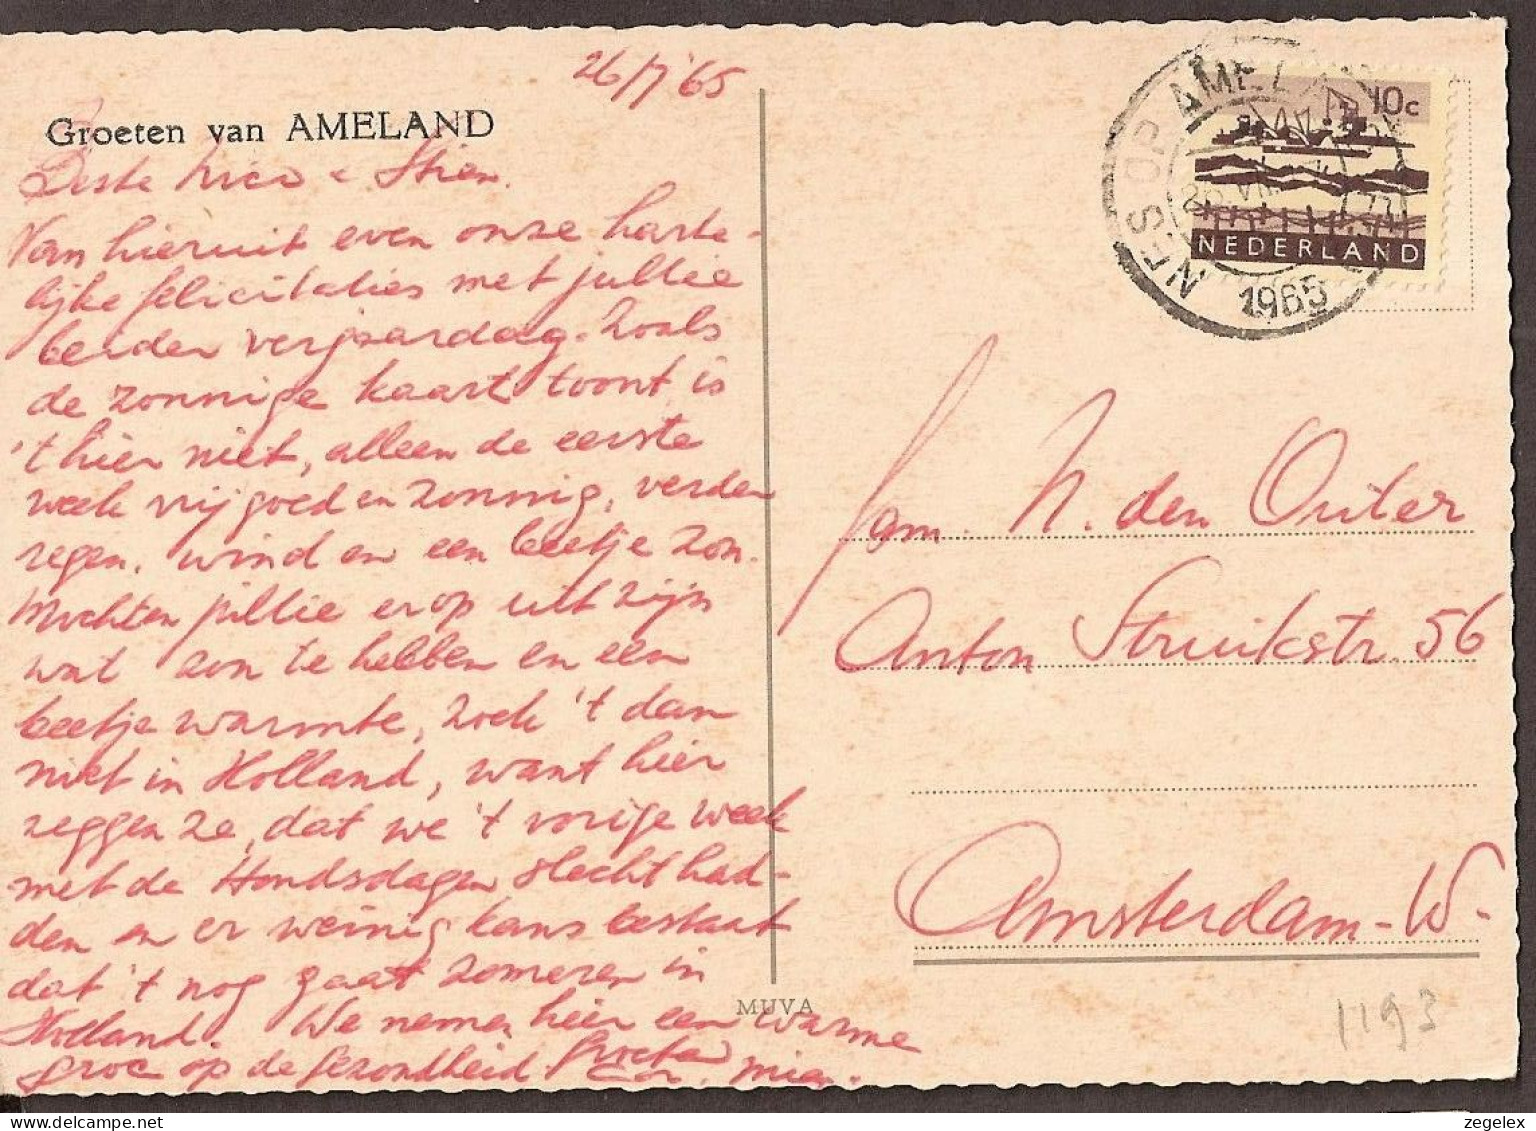 26/7 '65
Groeten van AMELAND
Beste Nico & Stien.
Van hieruit even onze harte-
lijke felicitaties met jullie
beider verjaardag. Zoals
de zonnige kaart toont is
't hier niet, alleen de eerste
week vrij goed en zonnig, verder
regen, wind en een beetje zon.
Mochten jullie erop uit zijn
wat zon te hebben en een
beetje warmte, zoek 't dan
niet in Holland, want hier
zeggen ze, dat we 't vorige week
met de Hondsdagen slecht had-
den en er weinig kans bestaat
dat 't nog gaat zomeren in
Holland. We nemen hier een warme
groc op de gezondheid. Groeten
Mien.
MUVA
NES OP AMELAND
1965
10c
NEDERLAND
Fam. N. den Outer
Anton Struikstr. 56
Amsterdam-W.
1193
zegelex